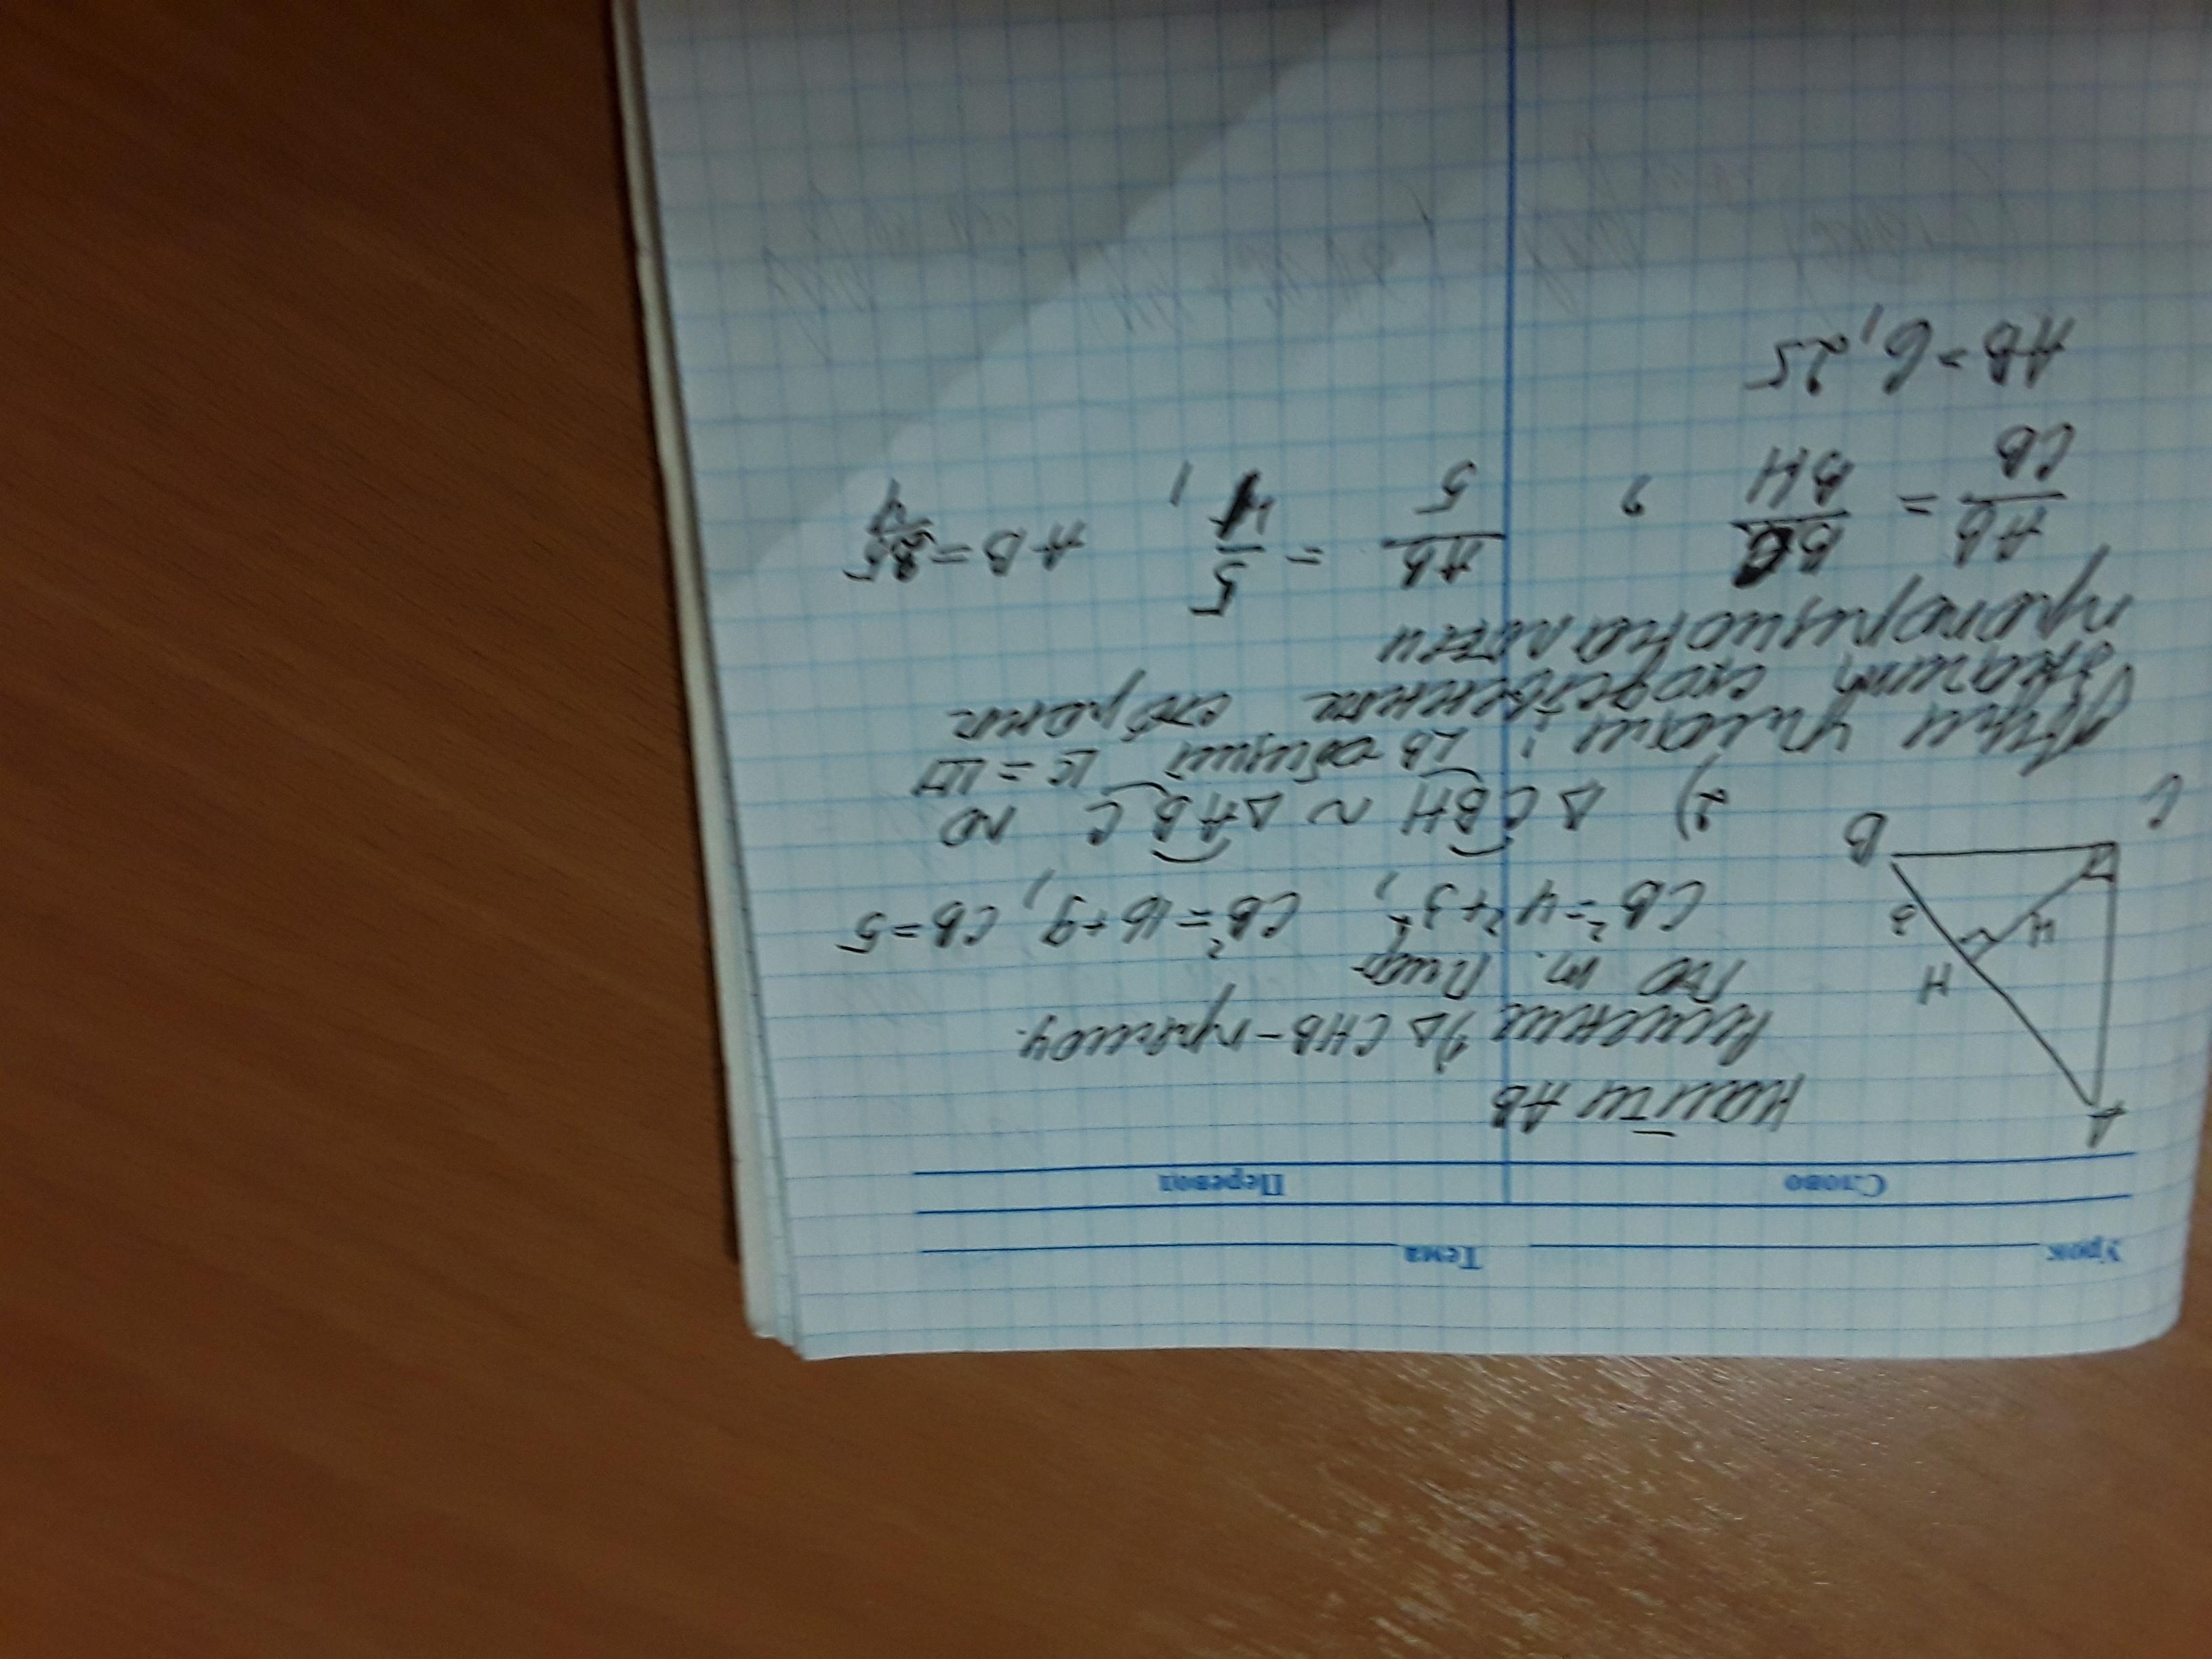 Урок Тема
Слово Перевод
Найти AB
Решение 1) △ CHB - прямоу.
по т. Пиф
CB² = 4² + 3², CB² = 16 + 9, CB = 5
A
H
4
3
B
C
2) △ CBH ~ △ ABC по
двум углам: ∠B общий ∠C = ∠H
Значит сходственные стороны
пропорциональны
AB/CB = BC/BH , AB/5 = 5/4 , AB = 25/4
AB = 6,25